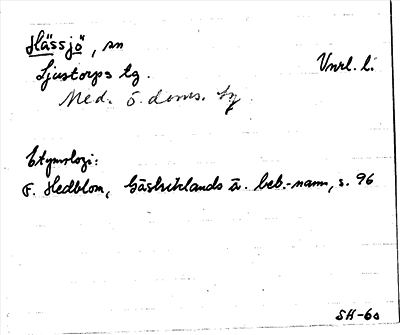 Hässjö, sn
Ljustorps tg. Vnrl. l.
Med. ö. doms. tg
Etymologi:
F. Hedblom, Gästriklands ä. beb.-namn, s. 96
SH-60